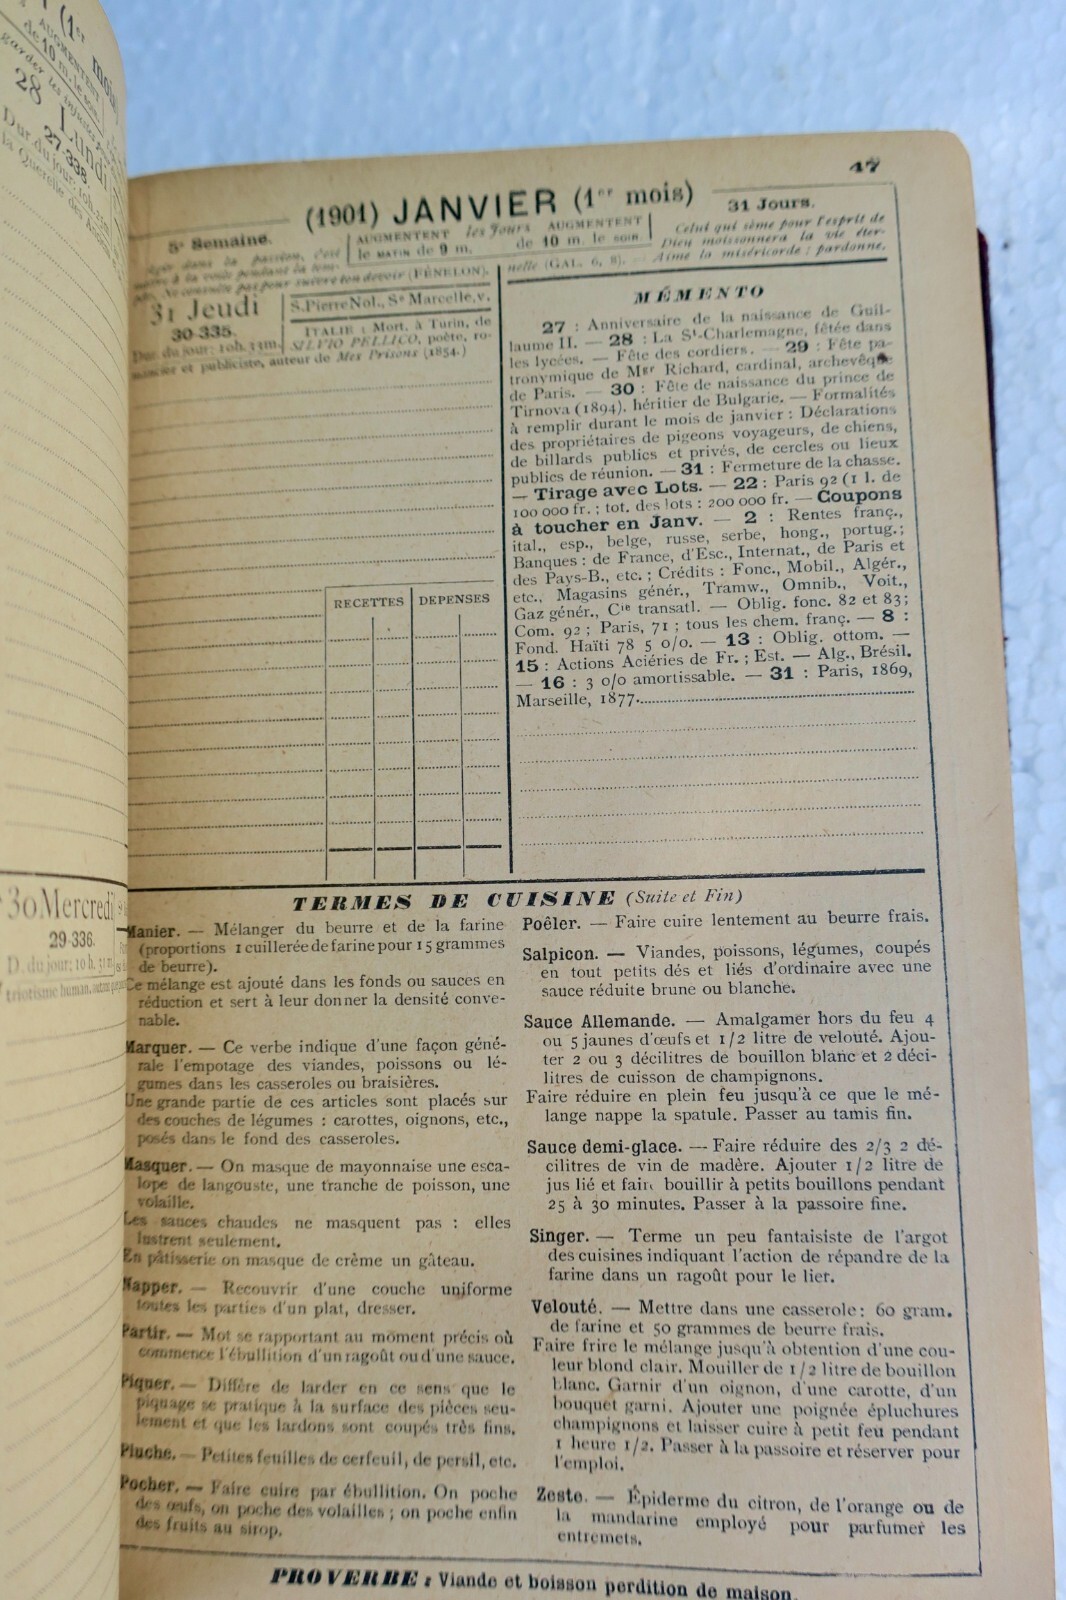 47
(1901) JANVIER (1er mois)
5e Semaine.
AUGMENTENT les Jours AUGMENTENT
le MATIN de 9 m. de 10 m. le soir.
31 Jours.
Celui qui sème pour l'esprit de
Dieu moissonnera la vie éter-
nelle (GAL. 6, 8). — Aime la miséricorde : pardonne.
Agir dans la passion, c'est
mettre à la voile pendant la tem-
pête. Ne consulte pas pour suivre ton devoir (FÉNELON).
31 Jeudi
30-335.
Dur. du jour: 10h. 13m.
S. Pierre Nol., Se Marcelle, v.
ITALIE : Mort, à Turin, de
SILVIO PELLICO, poète, ro-
mancier et publiciste, auteur de Mes Prisons (1854.)
RECETTES DEPENSES
MÉMENTO
27 : Anniversaire de la naissance de Guil-
laume II. — 28 : La St-Charlemagne, fêtée dans
les lycées. — Fête des cordiers. — 29 : Fête pa-
tronymique de Mgr Richard, cardinal, archevêque
de Paris. — 30 : Fête de naissance du prince de
Tirnova (1894), héritier de Bulgarie. — Formalités
à remplir durant le mois de janvier : Déclarations
des propriétaires de pigeons voyageurs, de chiens,
de billards publics et privés, de cercles ou lieux
publics de réunion. — 31 : Fermeture de la chasse.
— Tirage avec Lots. — 22 : Paris 92 (1 l. de
100 000 fr. ; tot. des lots : 200 000 fr. — Coupons
à toucher en Janv. — 2 : Rentes franç.,
ital., esp., belge, russe, serbe, hong., portug.;
Banques : de France, d'Esc., Internat., de Paris et
des Pays-B., etc. ; Crédits : Fonc., Mobil., Algér.,
etc., Magasins génér., Tramw., Omnib., Voit.,
Gaz génér., Cie transatl. — Oblig. fonc. 82 et 83;
Com. 92 ; Paris, 71 ; tous les chem. franç. — 8 :
Fond. Haïti 78 5 o/o. — 13 : Oblig. ottom. —
15 : Actions Aciéries de Fr. ; Est. — Alg., Brésil.
— 16 : 3 o/o amortissable. — 31 : Paris, 1869,
Marseille, 1877.
TERMES DE CUISINE (Suite et Fin)
Manier. — Mélanger du beurre et de la farine
(proportions 1 cuillerée de farine pour 15 grammes
de beurre).
Ce mélange est ajouté dans les fonds ou sauces en
réduction et sert à leur donner la densité conve-
nable.
Marquer. — Ce verbe indique d'une façon géné-
rale l'empotage des viandes, poissons ou lé-
gumes dans les casseroles ou braisières.
Une grande partie de ces articles sont placés sur
des couches de légumes : carottes, oignons, etc.,
posés dans le fond des casseroles.
Masquer. — On masque de mayonnaise une esca-
lope de langouste, une tranche de poisson, une
volaille.
Les sauces chaudes ne masquent pas : elles
lustrent seulement.
En pâtisserie on masque de crème un gâteau.
Napper. — Recouvrir d'une couche uniforme
toutes les parties d'un plat, dresser.
Partir. — Mot se rapportant au moment précis où
commence l'ébullition d'un ragoût ou d'une sauce.
Piquer. — Diffère de larder en ce sens que le
piquage se pratique à la surface des pièces seu-
lement et que les lardons sont coupés très fins.
Pluche. — Petites feuilles de cerfeuil, de persil, etc.
Pocher. — Faire cuire par ébullition. On poche
des œufs, on poche des volailles ; on poche enfin
des fruits au sirop.
Poêler. — Faire cuire lentement au beurre frais.
Salpicon. — Viandes, poissons, légumes, coupés
en tout petits dés et liés d'ordinaire avec une
sauce réduite brune ou blanche.
Sauce Allemande. — Amalgamer hors du feu 4
ou 5 jaunes d'œufs et 1/2 litre de velouté. Ajou-
ter 2 ou 3 décilitres de bouillon blanc et 2 déci-
litres de cuisson de champignons.
Faire réduire en plein feu jusqu'à ce que le mé-
lange nappe la spatule. Passer au tamis fin.
Sauce demi-glace. — Faire réduire des 2/3 2 dé-
cilitres de vin de madère. Ajouter 1/2 litre de
jus lié et faire bouillir à petits bouillons pendant
25 à 30 minutes. Passer à la passoire fine.
Singer. — Terme un peu fantaisiste de l'argot
des cuisines indiquant l'action de répandre de la
farine dans un ragoût pour le lier.
Velouté. — Mettre dans une casserole : 60 gram.
de farine et 50 grammes de beurre frais.
Faire frire le mélange jusqu'à obtention d'une cou-
leur blond clair. Mouiller de 1/2 litre de bouillon
blanc. Garnir d'un oignon, d'une carotte, d'un
bouquet garni. Ajouter une poignée épluchures
champignons et laisser cuire à petit feu pendant
1 heure 1/2. Passer à la passoire et réserver pour
l'emploi.
Zeste. — Épiderme du citron, de l'orange ou de
la mandarine employé pour parfumer les
entremets.
PROVERBE : Viande et boisson perdition de maison.
(1er mois
AUGMENTENT
de 10 m. le soir.
28 Lundi
27-338.
la Querelle des
30 Mercredi
29-336.
D. du jour: 10 h. 11 m